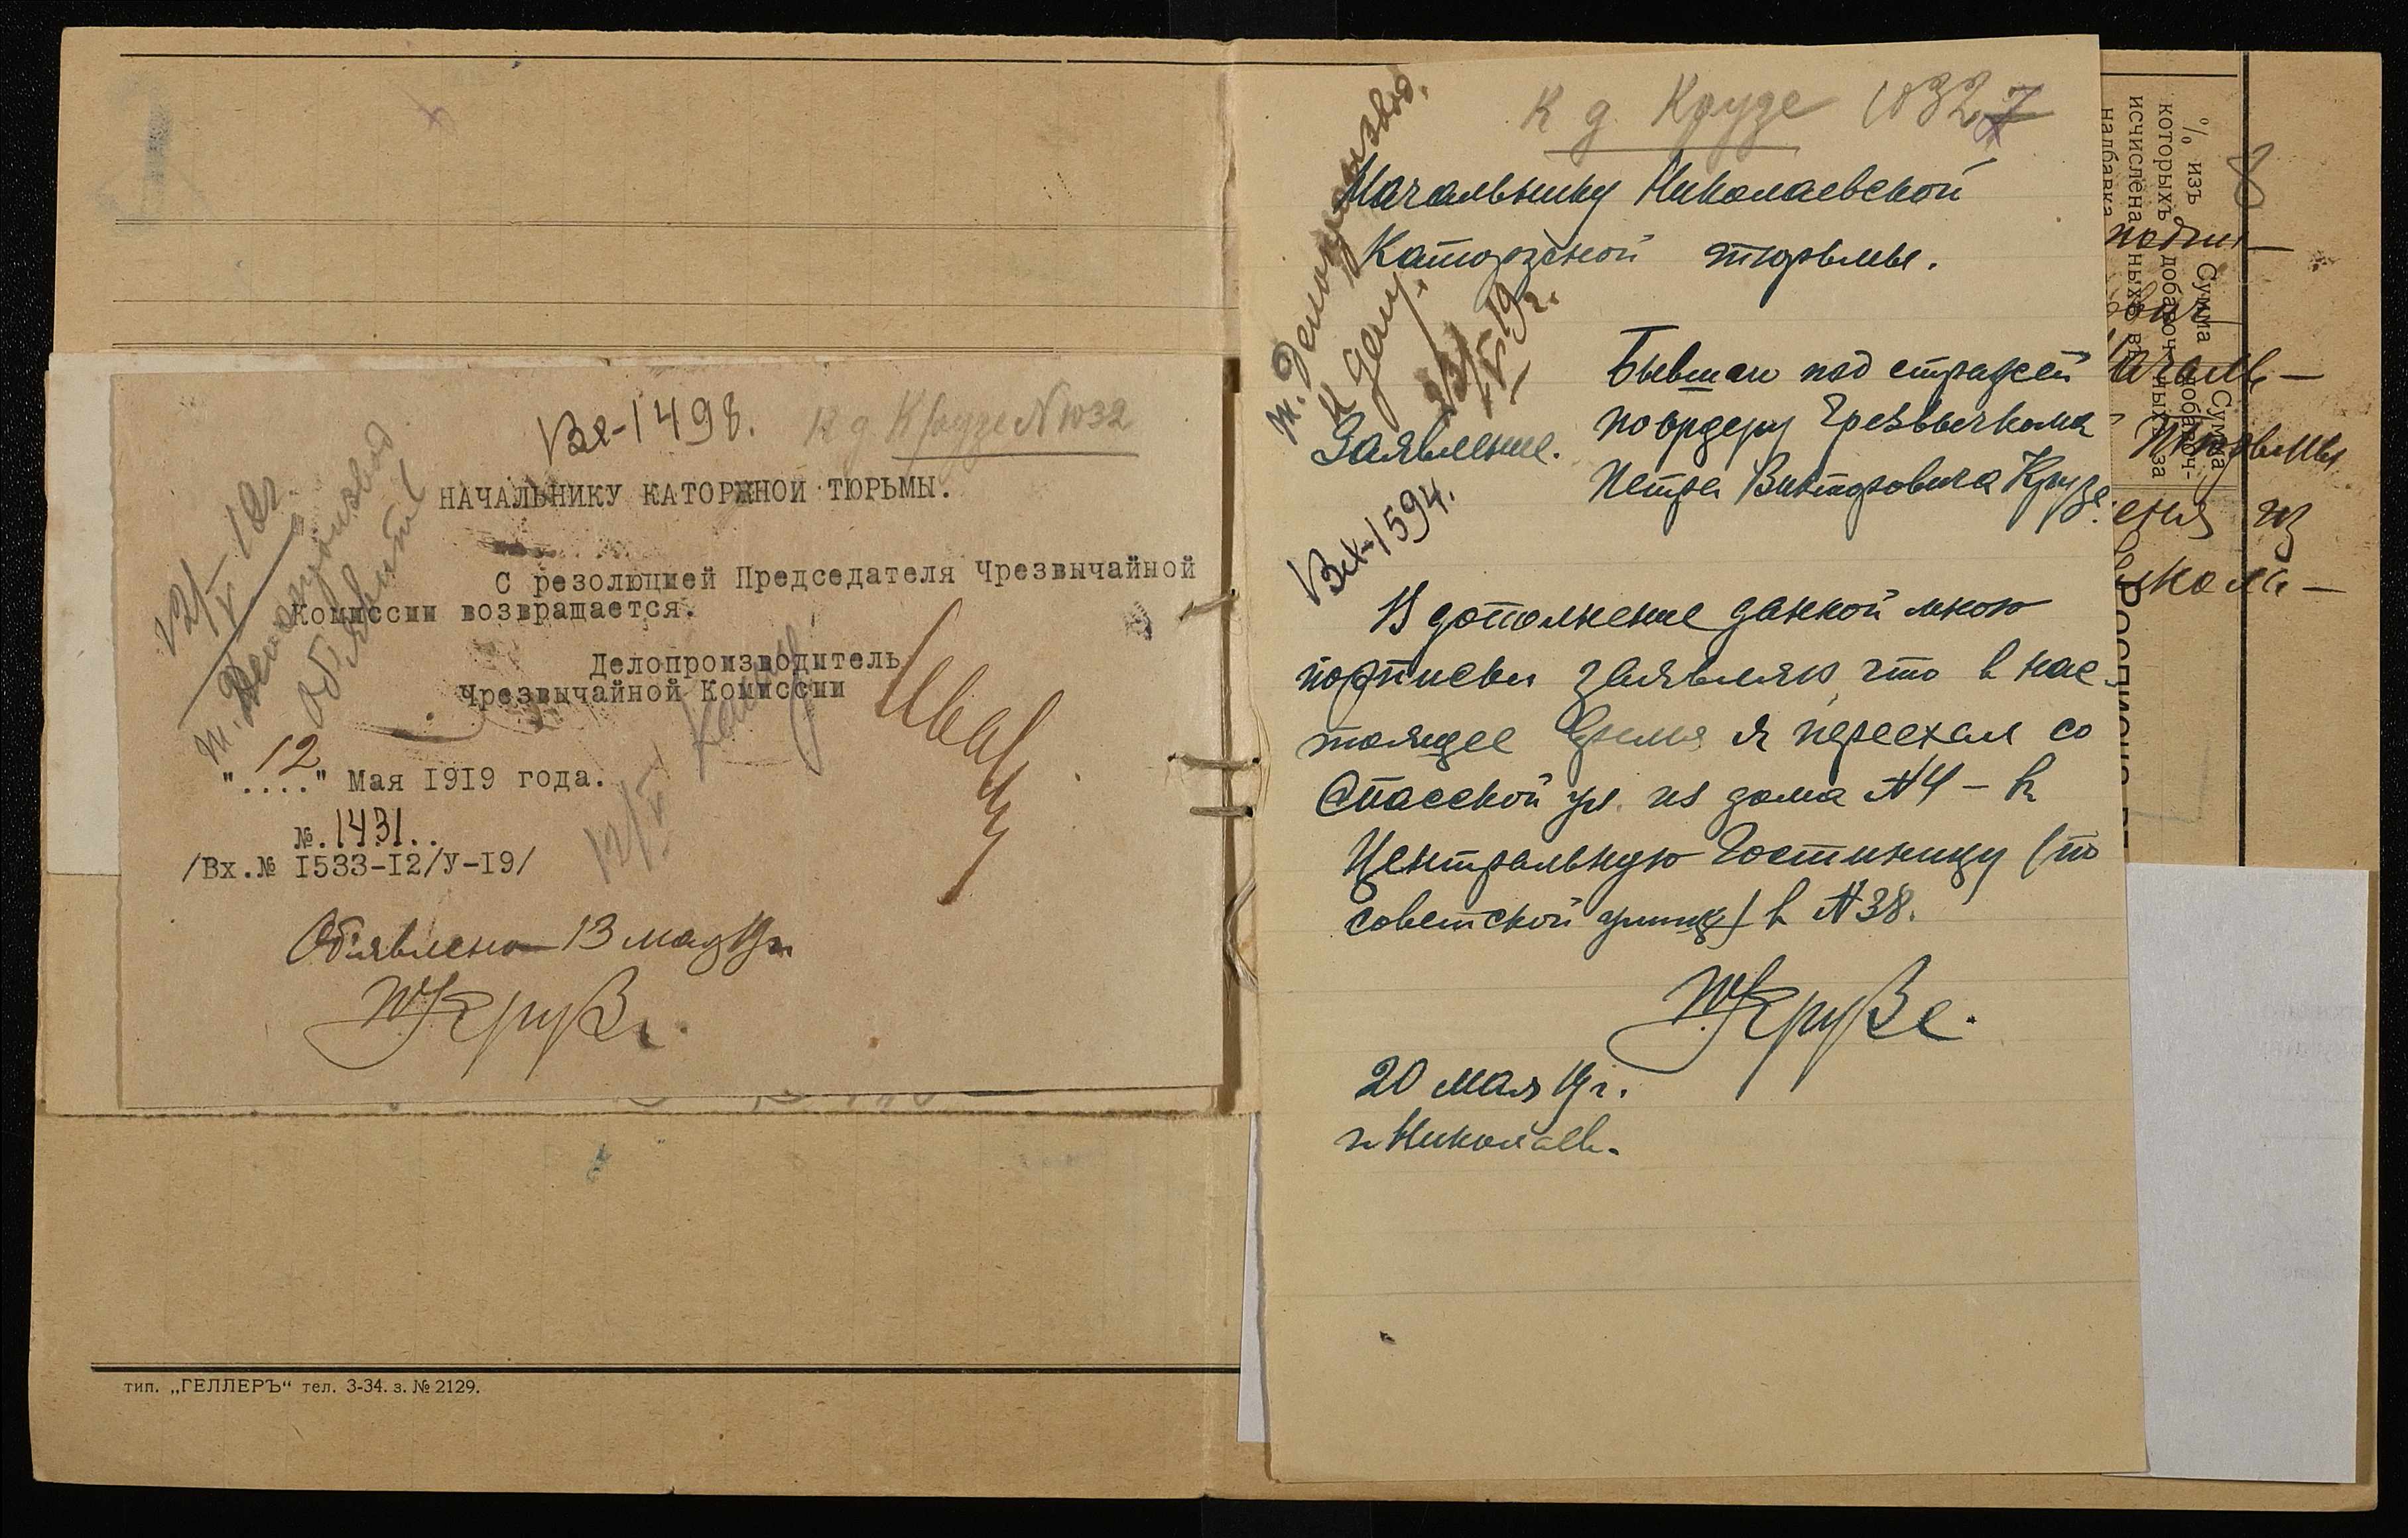 Вх-1498. К д. Крузе N 1032
НАЧАЛЬНИКУ КАТОРЖНОЙ ТЮРЬМЫ.
С резолюцией Председателя Чрезвычайной
Комиссии возвращается.
Делопроизводитель
Чрезвычайной Комиссии
12/V-19г.
т. Делопроизвод
Объявить
12/V
"12" Мая 1919 года.
№.1431..
/Вх.№ 1533-12/У-19/
Объявлено 13 мая 19г.
П Крузе.
тип. „ГЕЛЛЕРЪ“ тел. 3-34. з. № 2129.
К д Крузе 1032
т. Делопроизвод.
К делу.
Начальнику Николаевской
Каторжной тюрьмы.
Бывшаго под стражей
по ордеру Чрезвычкома
Петра Викторовича Крузе.
Заявление.
Вх-1594.
В дополнение данной мною
подписки заявляю, что в нас-
тоящее время я переехал со
Спасской ул. из дома №4 – в
Центральную Гостиницу (по
советской улице) в №38.
П Крузе.
20 мая 19г.
г. Николаев.
% изъ
которыхъ
исчислена
надбавка
Сумма
добавоч-
ныхъ за
8